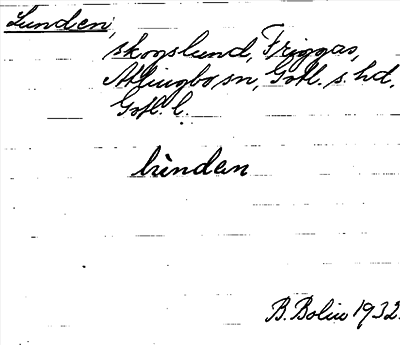 Lunden,
skogslund, Friggas,
Atlingbo sn, Gotl. s. hd,
Gotl. l.
lùnden
B. Bolin 1932.